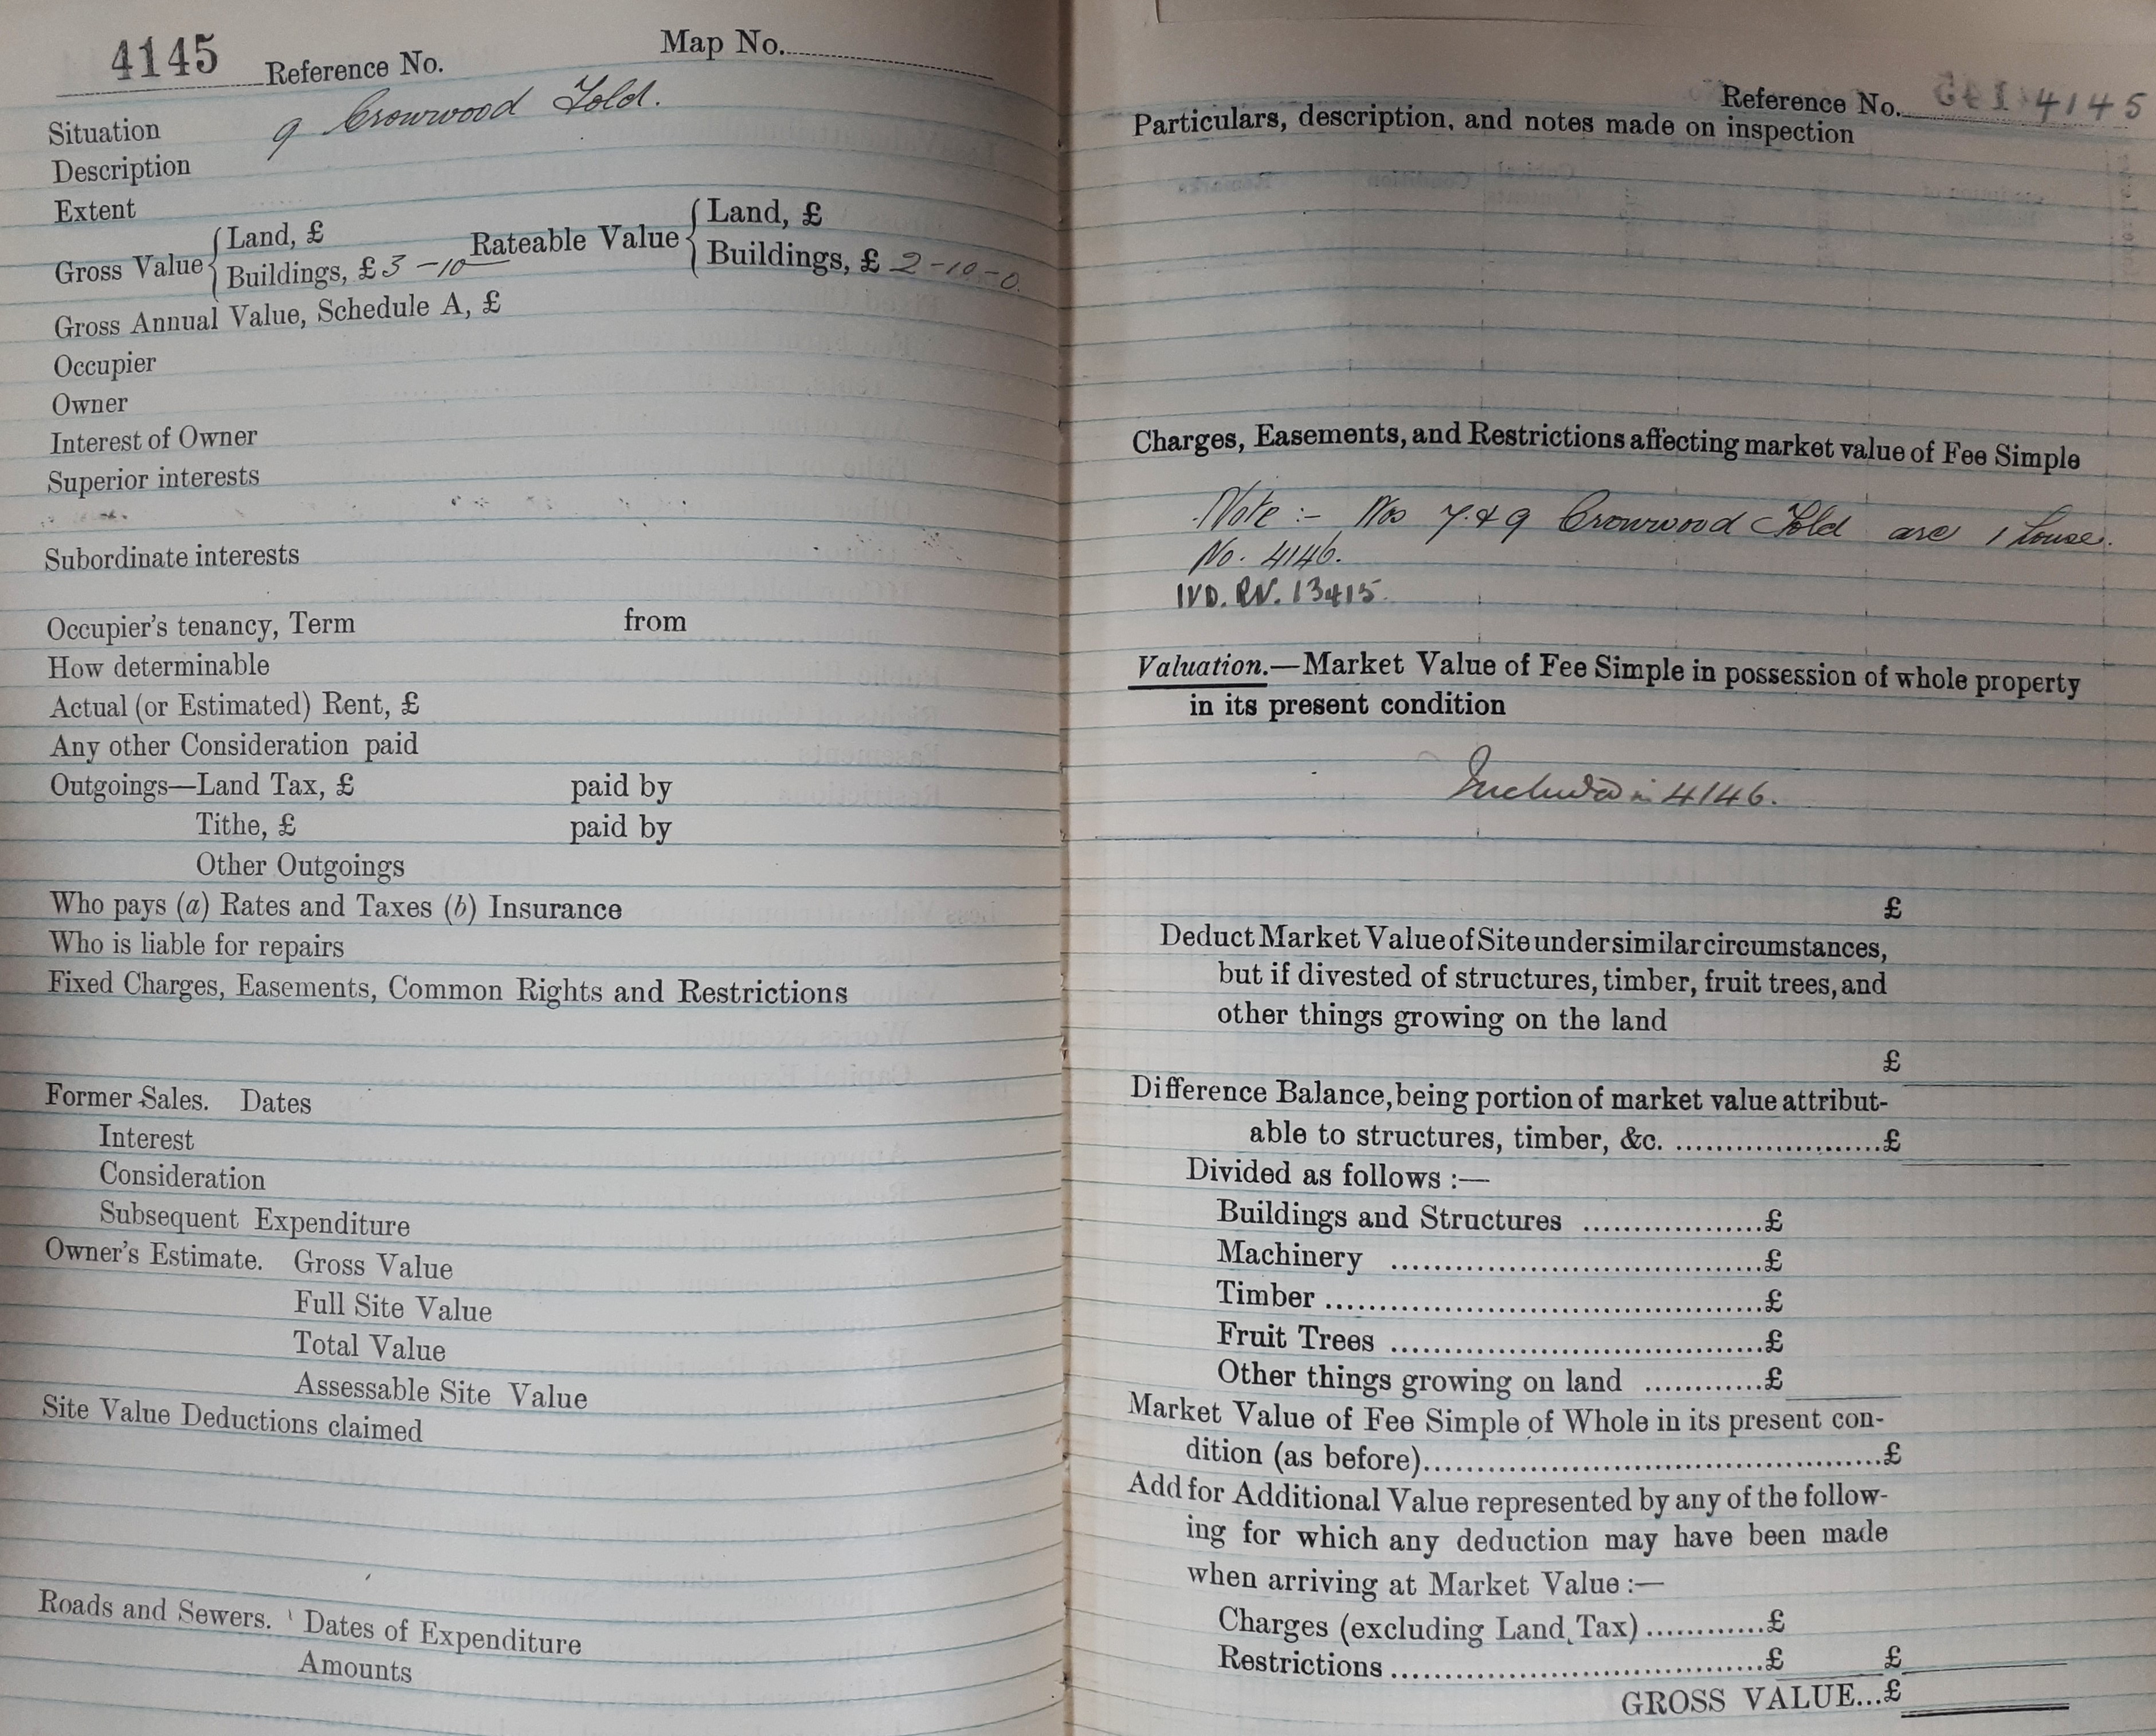 4145 Reference No. Map No.
Situation 9 Crowwood Fold.
Description
Extent
Gross Value { Land, £
Buildings, £ 3-10 Rateable Value { Land, £
Buildings, £ 2-10-0.
Gross Annual Value, Schedule A, £
Occupier
Owner
Interest of Owner
Superior interests
Subordinate interests
Occupier's tenancy, Term from
How determinable
Actual (or Estimated) Rent, £
Any other Consideration paid
Outgoings—Land Tax, £ paid by
Tithe, £ paid by
Other Outgoings
Who pays (a) Rates and Taxes (b) Insurance
Who is liable for repairs
Fixed Charges, Easements, Common Rights and Restrictions
Former Sales. Dates
Interest
Consideration
Subsequent Expenditure
Owner's Estimate. Gross Value
Full Site Value
Total Value
Assessable Site Value
Site Value Deductions claimed
Roads and Sewers. Dates of Expenditure
Amounts
Reference No. 4145
Particulars, description, and notes made on inspection
Charges, Easements, and Restrictions affecting market value of Fee Simple
Note :- Nos 7 & 9 Crowwood Fold are 1 house.
No. 4146.
IVD. RV. 13415.
Valuation.—Market Value of Fee Simple in possession of whole property
in its present condition
Included in 4146.
£
Deduct Market Value of Site under similar circumstances,
but if divested of structures, timber, fruit trees, and
other things growing on the land
£
Difference Balance, being portion of market value attribut-
able to structures, timber, &c. ....................£
Divided as follows :—
Buildings and Structures ..................£
Machinery ....................................£
Timber ..........................................£
Fruit Trees ....................................£
Other things growing on land ............£
Market Value of Fee Simple of Whole in its present con-
dition (as before)............................................£
Add for Additional Value represented by any of the follow-
ing for which any deduction may have been made
when arriving at Market Value :—
Charges (excluding Land Tax) ............£
Restrictions ....................................£ £
GROSS VALUE...£